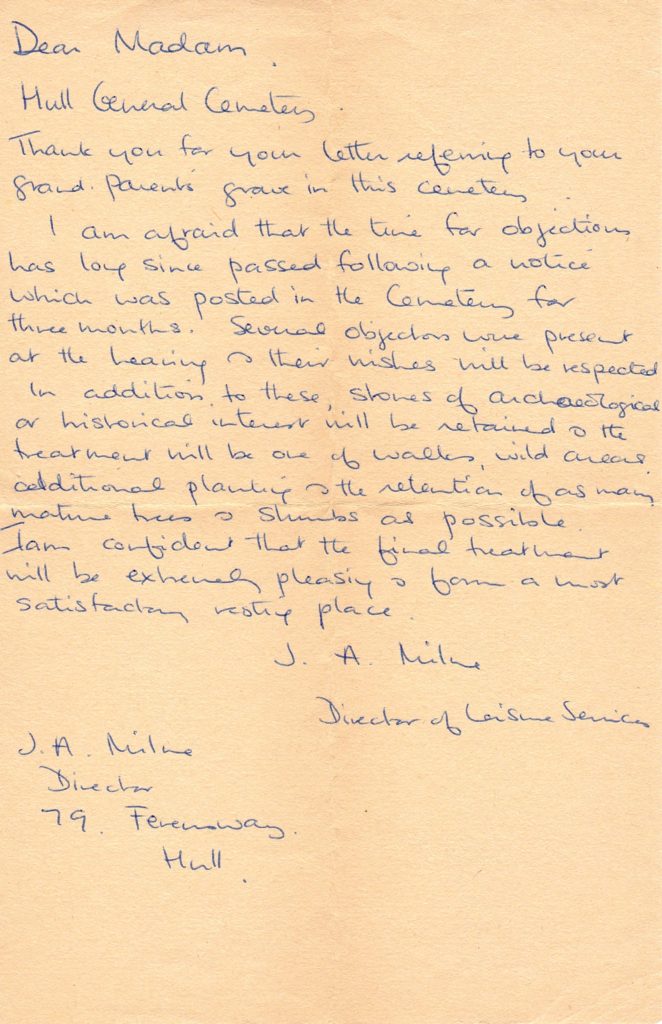 Dear Madam.
Hull General Cemetery.
Thank you for your letter referring to your
grand-Parents' grave in this cemetery.
I am afraid that the time for objections
has long since passed following a notice
which was posted in the Cemetery for
three months. Several objectors were present
at the hearing & their wishes will be respected
In addition to these, stones of archaeological
or historical interest will be retained & the
treatment will be one of walks, wild areas,
additional planting & the retention of as many
mature trees & shrubs as possible.
I am confident that the final treatment
will be extremely pleasing & form a most
satisfactory resting place.
J. A. Milne
Director of Leisure Services
J. A. Milne
Director
79. Ferensway.
Hull.